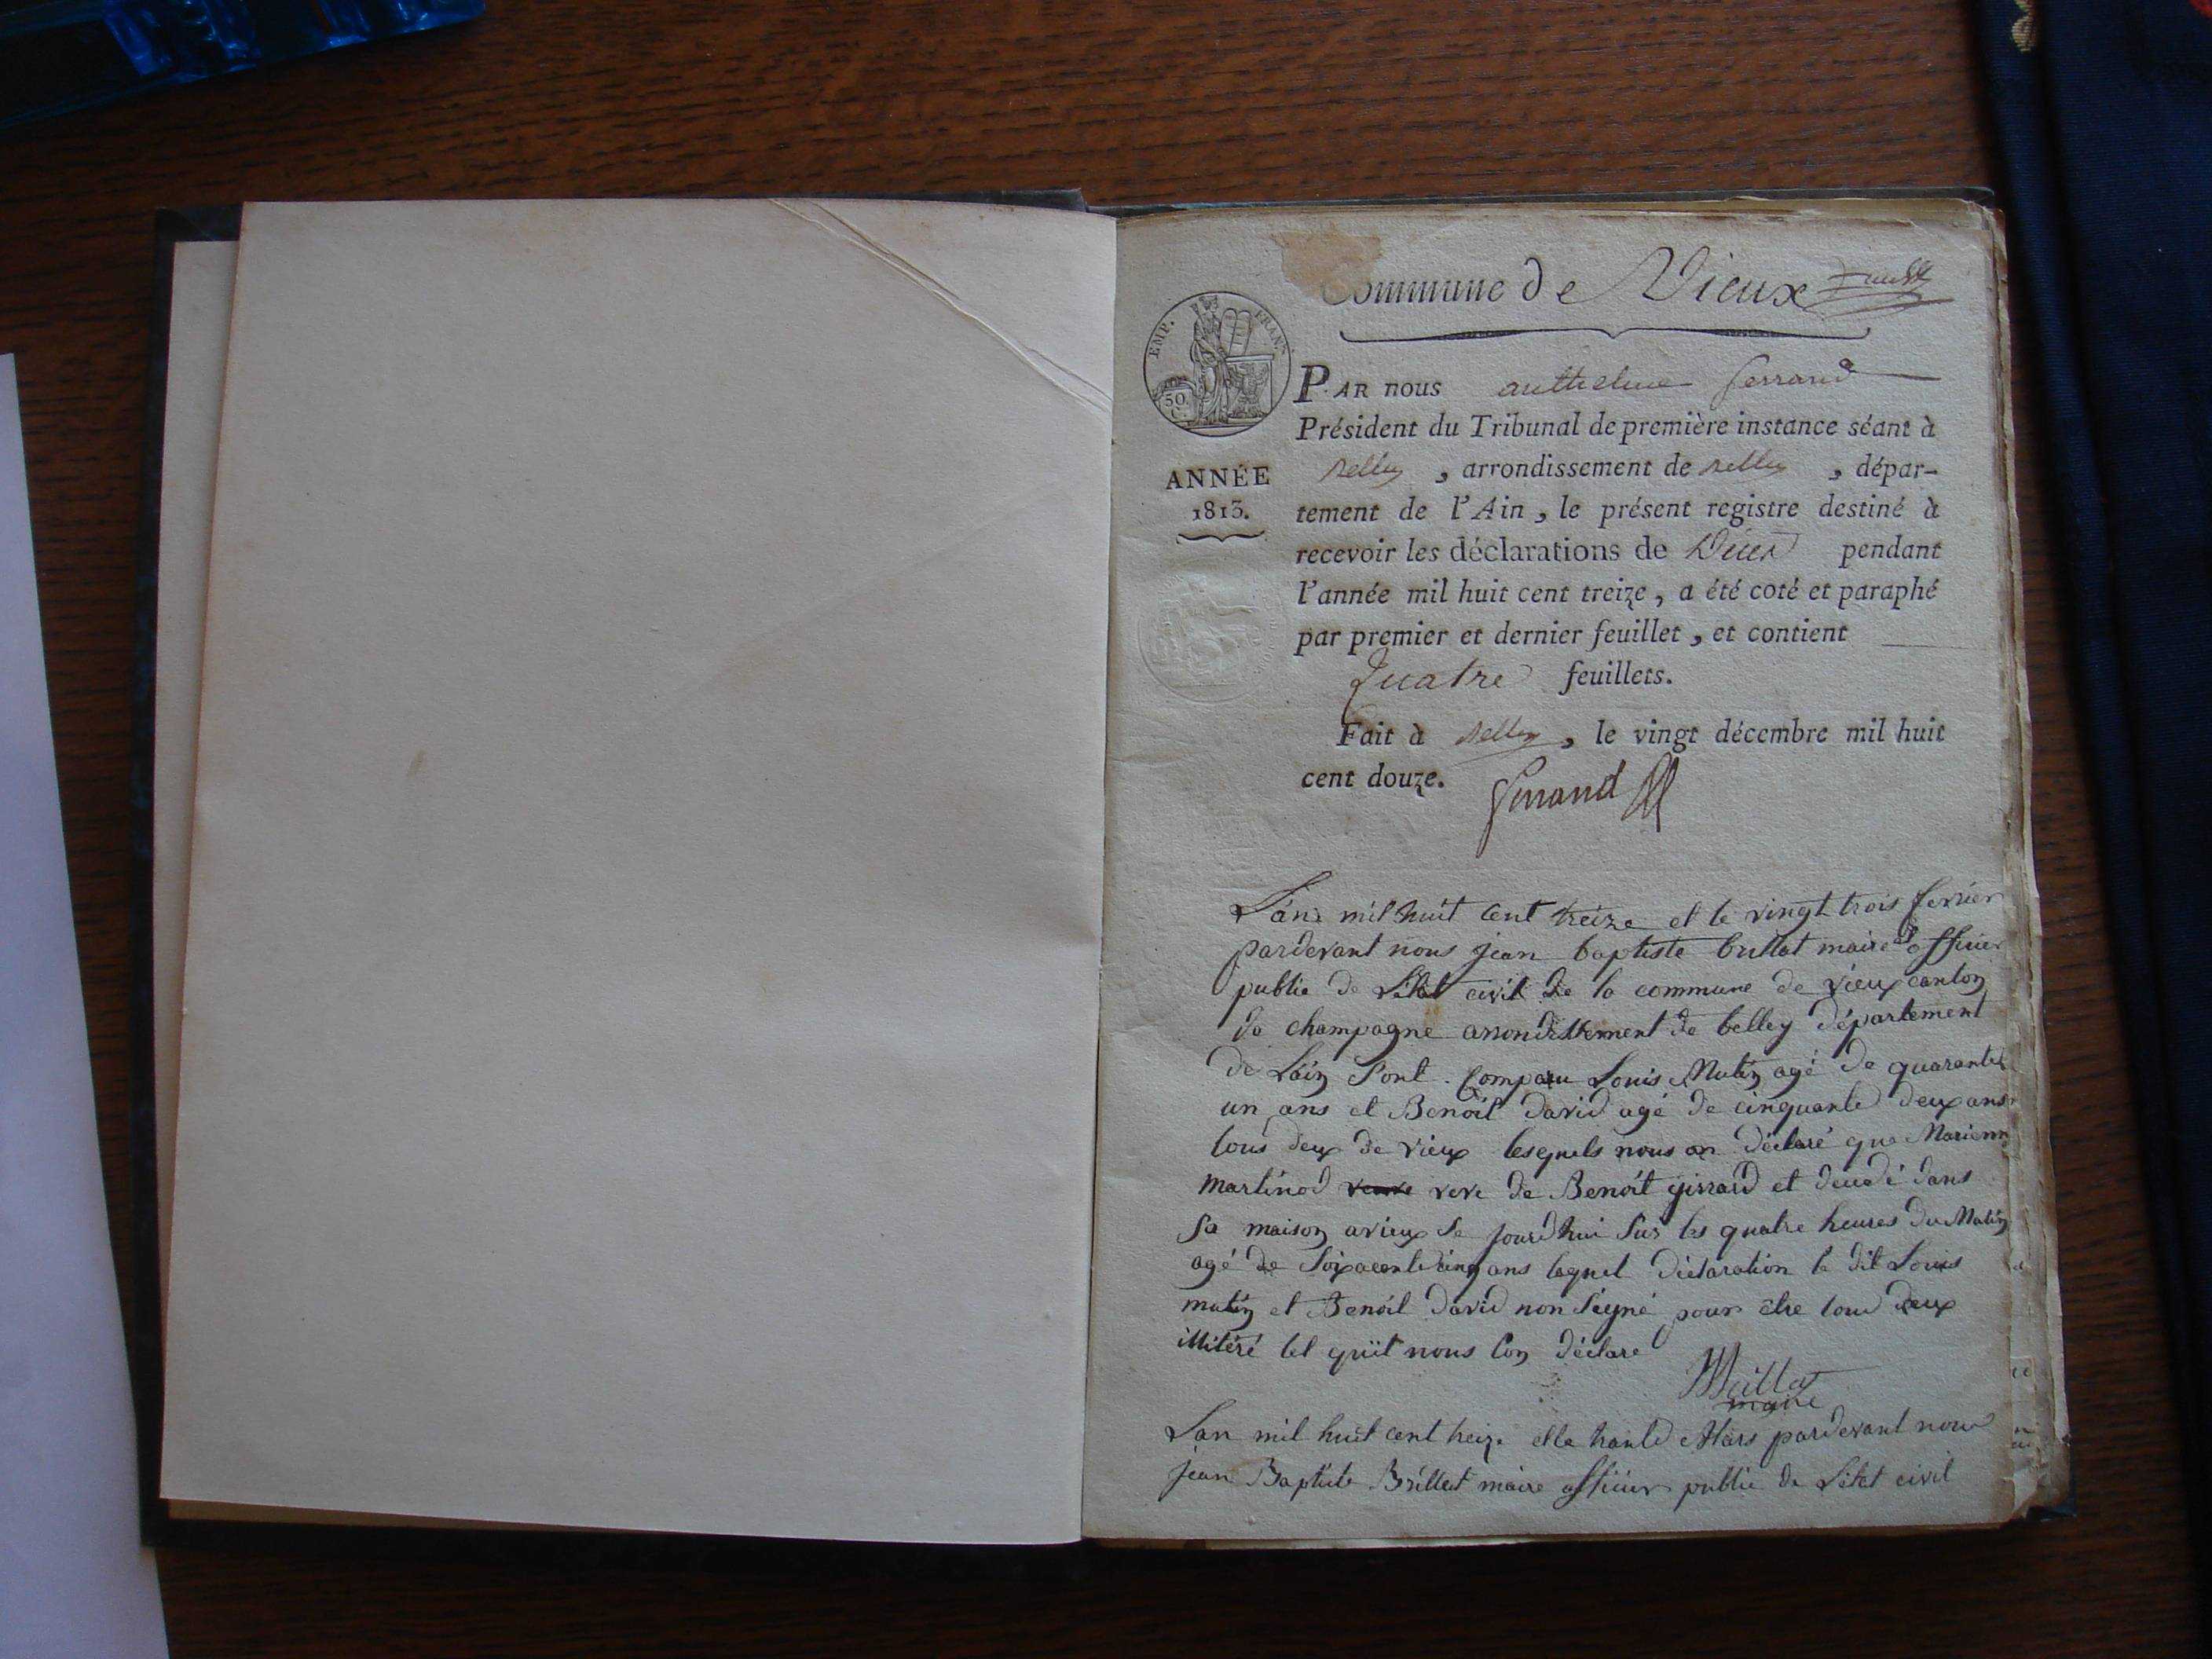 Commune de Vieux
EMP. FRAN.
50.
C.
ANNÉE
1813.
PAR nous anthelme ferrand
Président du Tribunal de première instance séant à
Belley, arrondissement de Belley, dépar-
tement de l'Ain, le présent registre destiné à
recevoir les déclarations de Décès pendant
l'année mil huit cent treize, a été coté et paraphé
par premier et dernier feuillet, et contient
Quatre feuillets.
Fait à Belley, le vingt décembre mil huit
cent douze. ferrand
L'an mil huit cent treize et le vingt trois fevrier
pardevant nous jean baptiste brillat maire et officier
public de L'état civil de la commune de vieux canton
de champagne arrondissement de belley département
de Lain Sont Comparu Louis Mutin agé de quarante
un ans et Benoit david agé de cinquante deux ans
tous deux de vieux lesquels nous on déclaré que Marienne
martinod veve de Benoit girrard et decedé dans
Sa maison avieux Se jourdhui Sur les quatre heures du Matin
agé de Soixacente cinq ans lequel déclaration le dit Louis
mutin et Benoit david non Seigné pour être tous deux
illitéré tel quil nous lon déclare
maire
Lan mil huit cent treize et le trante Mars pardevant nous
jean Baptiste Brillat maire officier public de L'état civil